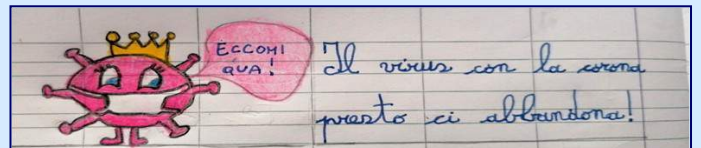 ECCOMI
QUA!
Il virus con la corona
presto ci abbandona!